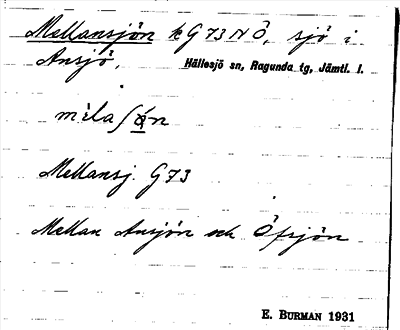 Mellansjön k G 73 NÖ, sjö i
Ansjö, Hällesjö sn, Ragunda tg, Jämtl. l.
Mellansj. G 73
Mellan Ansjön och Öfsjön
E. BURMAN 1931